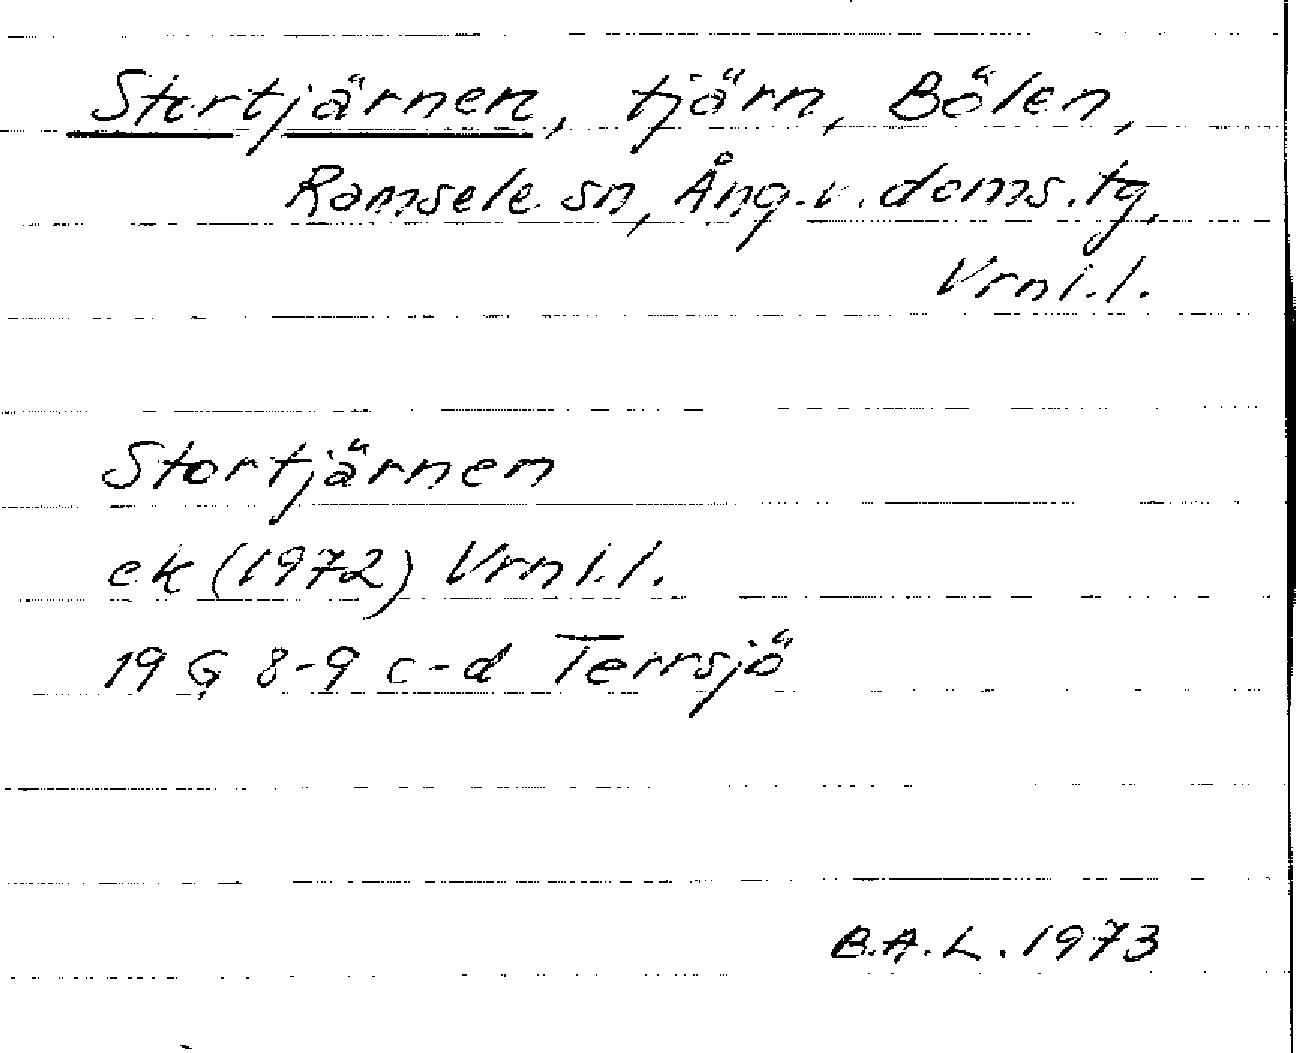 Stortjärnen, tjärn, Bölen,
Ramsele sn, Ång. v. doms. tg,
Vrnl. l.
Stortjärnen
ek (1972) Vrnl. l.
19 G 8-9 c-d Terrsjö
B.A.L. 1973